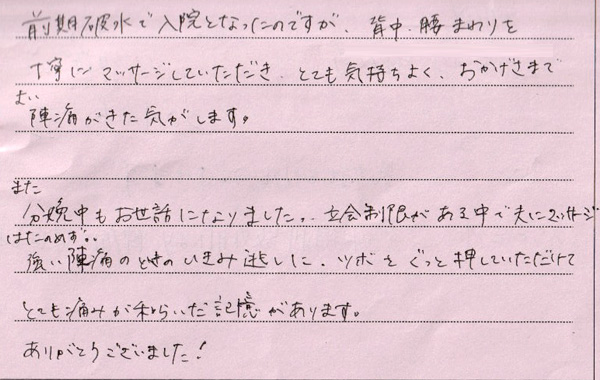 前期破水で入院となったのですが、背中、腰まわりを
丁寧にマッサージしていただき、とても気持ちよく、おかげさまで
陣痛がきた気がします。
また
分娩中もお世話になりました。立会制限がある中で夫にマッサージ
はたのめず。。
強い陣痛のときのいきみ逃しに、ツボをぐっと押していただけて
とても痛みが和らいだ記憶があります。
ありがとうございました!